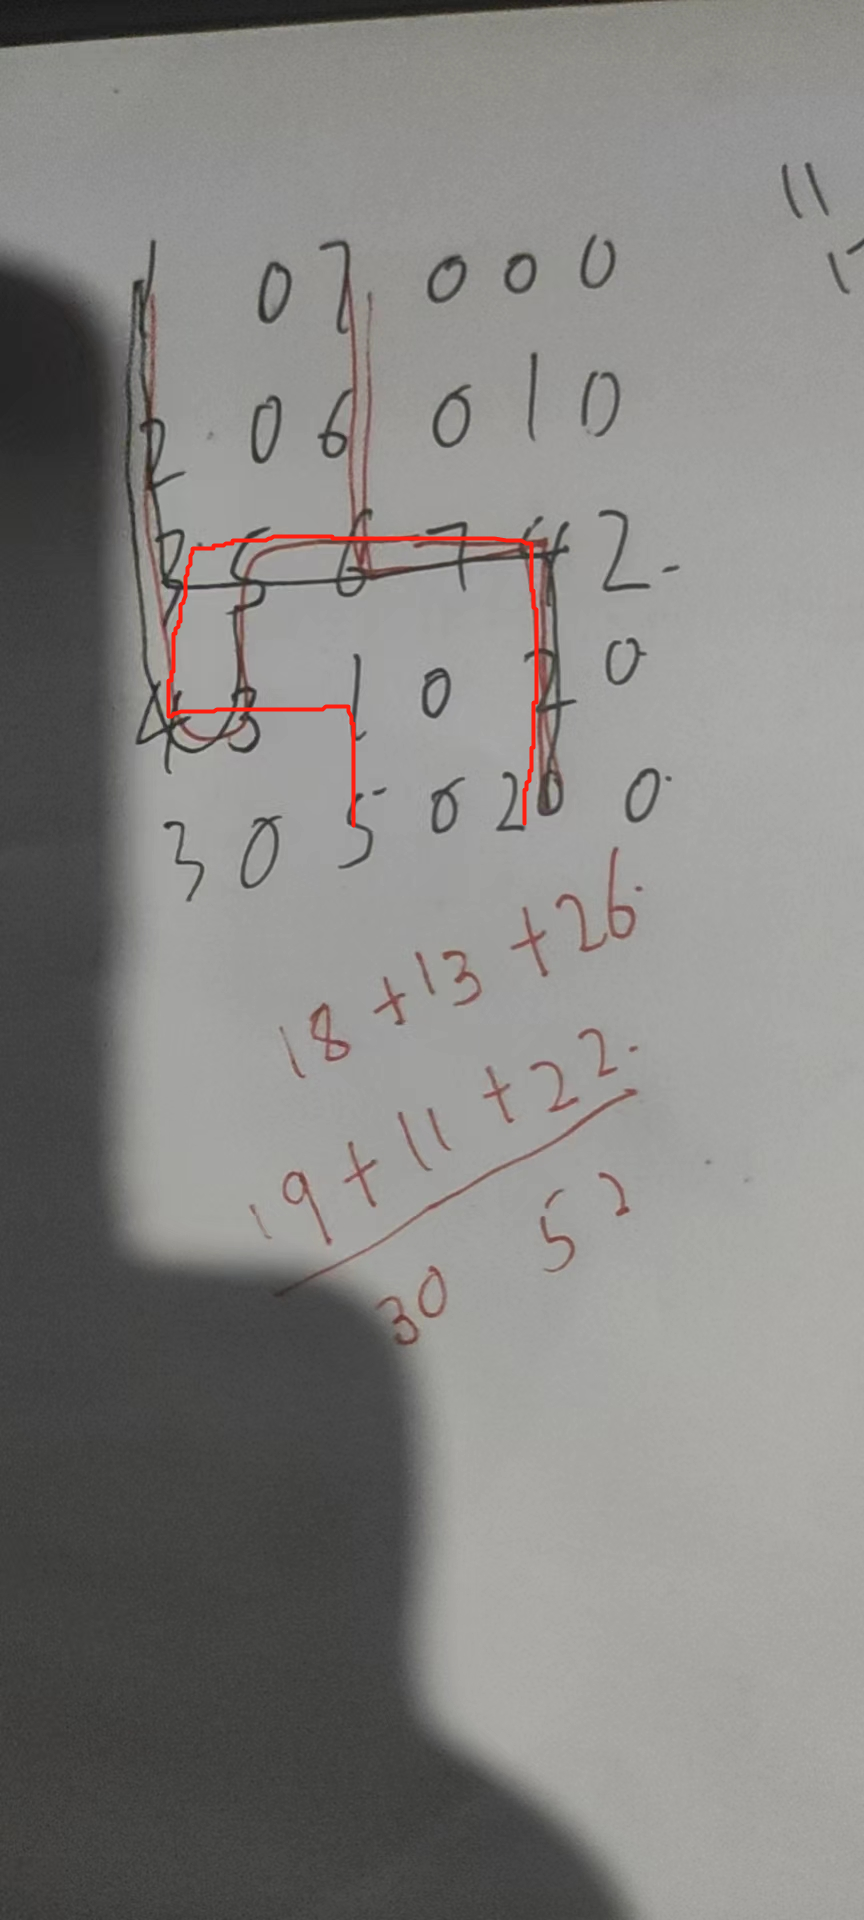 11
1 0 7 0 0 0
2 0 6 0 1 0
3 5 6 7 4 2
4 3 1 0 2 0
3 0 5 0 20 0
18+13+26
19+11+22
30 52